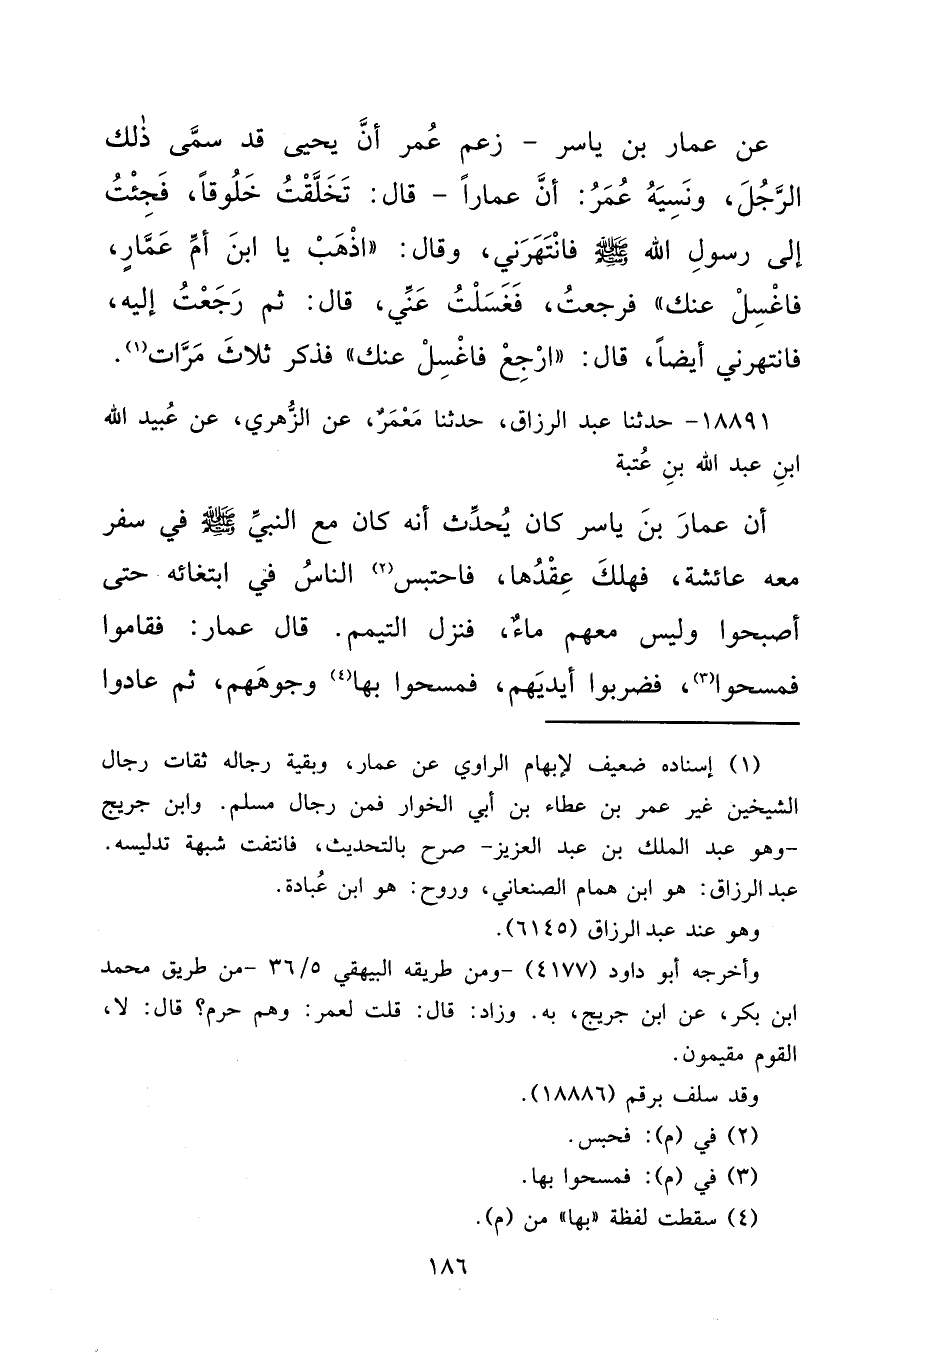 عن عمار بن ياسر - زعم عُمر أنَّ يحيى قد سمَّى ذٰلك
الرَّجُلَ، ونَسِيَهُ عُمَرُ: أنَّ عماراً - قال: تَخَلَّقْتُ خَلُوقاً، فَجِئْتُ
إلى رسولِ الله ﷺ فانْتَهَرَني، وقال: «اذْهَبْ يا ابنَ أمِّ عَمَّارٍ،
فاغْسِلْ عنك» فرجعتُ، فَغَسَلْتُ عَنِّي، قال: ثم رَجَعْتُ إليه،
فانتهرني أيضاً، قال: «ارْجِعْ فاغْسِلْ عنك» فذكر ثلاثَ مَرَّات(١).
١٨٨٩١- حدثنا عبد الرزاق، حدثنا مَعْمَرٌ، عن الزُّهري، عن عُبيد الله
ابنِ عبد الله بنِ عُتبة
أن عمارَ بنَ ياسر كان يُحدِّث أنه كان مع النبيِّ ﷺ في سفر
معه عائشة، فهلكَ عِقْدُها، فاحتبس(٢) الناسُ في ابتغائه حتى
أصبحوا وليس معهم ماءٌ، فنزل التيمم. قال عمار: فقاموا
فمسحوا(٣)، فضربوا أيديَهم، فمسحوا بها(٤) وجوهَهم، ثم عادوا
(١) إسناده ضعيف لإبهام الراوي عن عمار، وبقية رجاله ثقات رجال
الشيخين غير عمر بن عطاء بن أبي الخوار فمن رجال مسلم. وابن جريج
-وهو عبد الملك بن عبد العزيز- صرح بالتحديث، فانتفت شبهة تدليسه.
عبد الرزاق: هو ابن همام الصنعاني، وروح: هو ابن عُبادة.
وهو عند عبد الرزاق (٦١٤٥).
وأخرجه أبو داود (٤١٧٧) -ومن طريقه البيهقي ٣٦/٥ -من طريق محمد
ابن بكر، عن ابن جريج، به. وزاد: قال: قلت لعمر: وهم حرم؟ قال: لا،
القوم مقيمون.
وقد سلف برقم (١٨٨٨٦).
(٢) في (م): فحبس.
(٣) في (م): فمسحوا بها.
(٤) سقطت لفظة «بها» من (م).
١٨٦